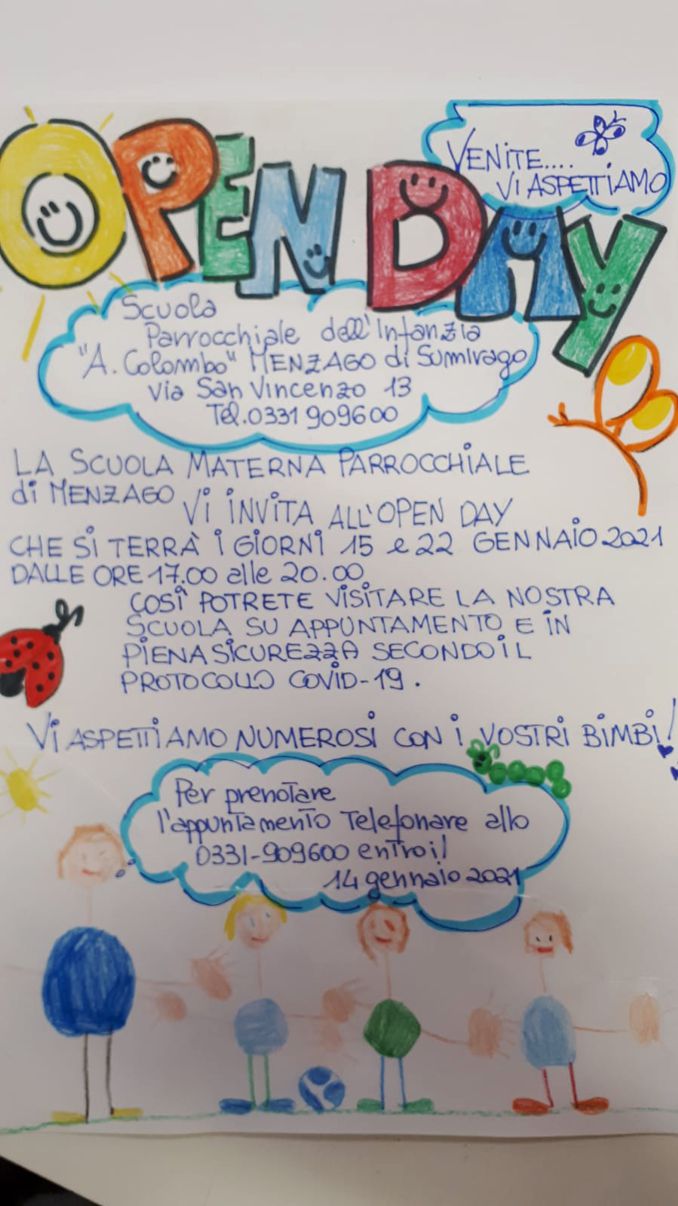 OPEN DAY
VENITE....
VI ASPETTIAMO
Scuola
Parrocchiale dell'Infanzia
"A. Colombo" MENZAGO di Sumirago
via San Vincenzo 13
Tel. 0331 909600
LA SCUOLA MATERNA PARROCCHIALE
di MENZAGO
VI INVITA ALL'OPEN DAY
CHE SI TERRÀ I GIORNI 15 e 22 GENNAIO 2021
DALLE ORE 17.00 alle 20.00
COSÌ POTRETE VISITARE LA NOSTRA
SCUOLA SU APPUNTAMENTO E IN
PIENA SICUREZZA SECONDO IL
PROTOCOLLO COVID-19.
VI ASPETTIAMO NUMEROSI CON I VOSTRI BIMBI!
Per prenotare
l'appuntamento Telefonare allo
0331-909600 entro il
14 gennaio 2021